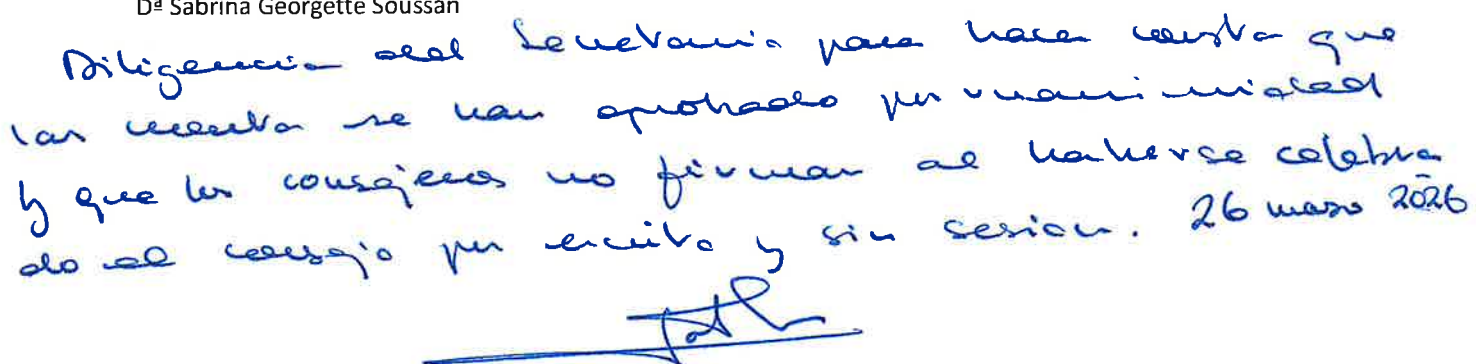 Dª Sabrina Georgette Soussan
Diligencia del Secretario para hacer constar que
las cuentas se han aprobado por unanimidad
y que los consejeros no firman al haberse celebra
do el consejo por escrito y sin sesion. 26 marzo 2026